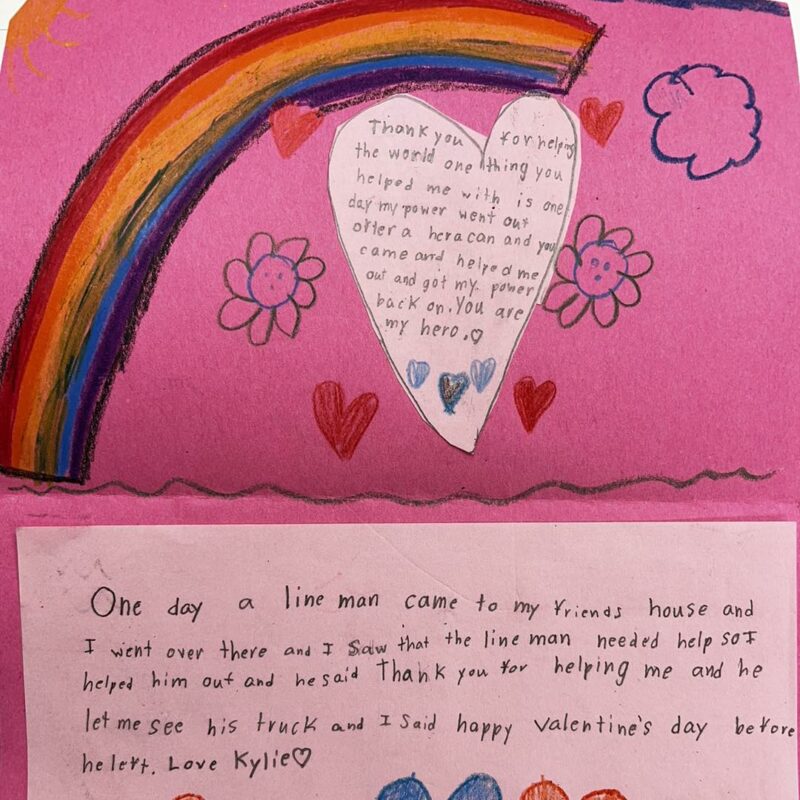 Thank you for helping
the world one thing you
helped me with is one
day my power went out
ofter a heracan and you
came and helped me
out and got my power
back on. You are
my hero.
One day a line man came to my friends house and
I went over there and I saw that the line man needed help so I
helped him out and he said Thank you for helping me and he
let me see his truck and I said happy valentine's day before
he left. Love Kylie